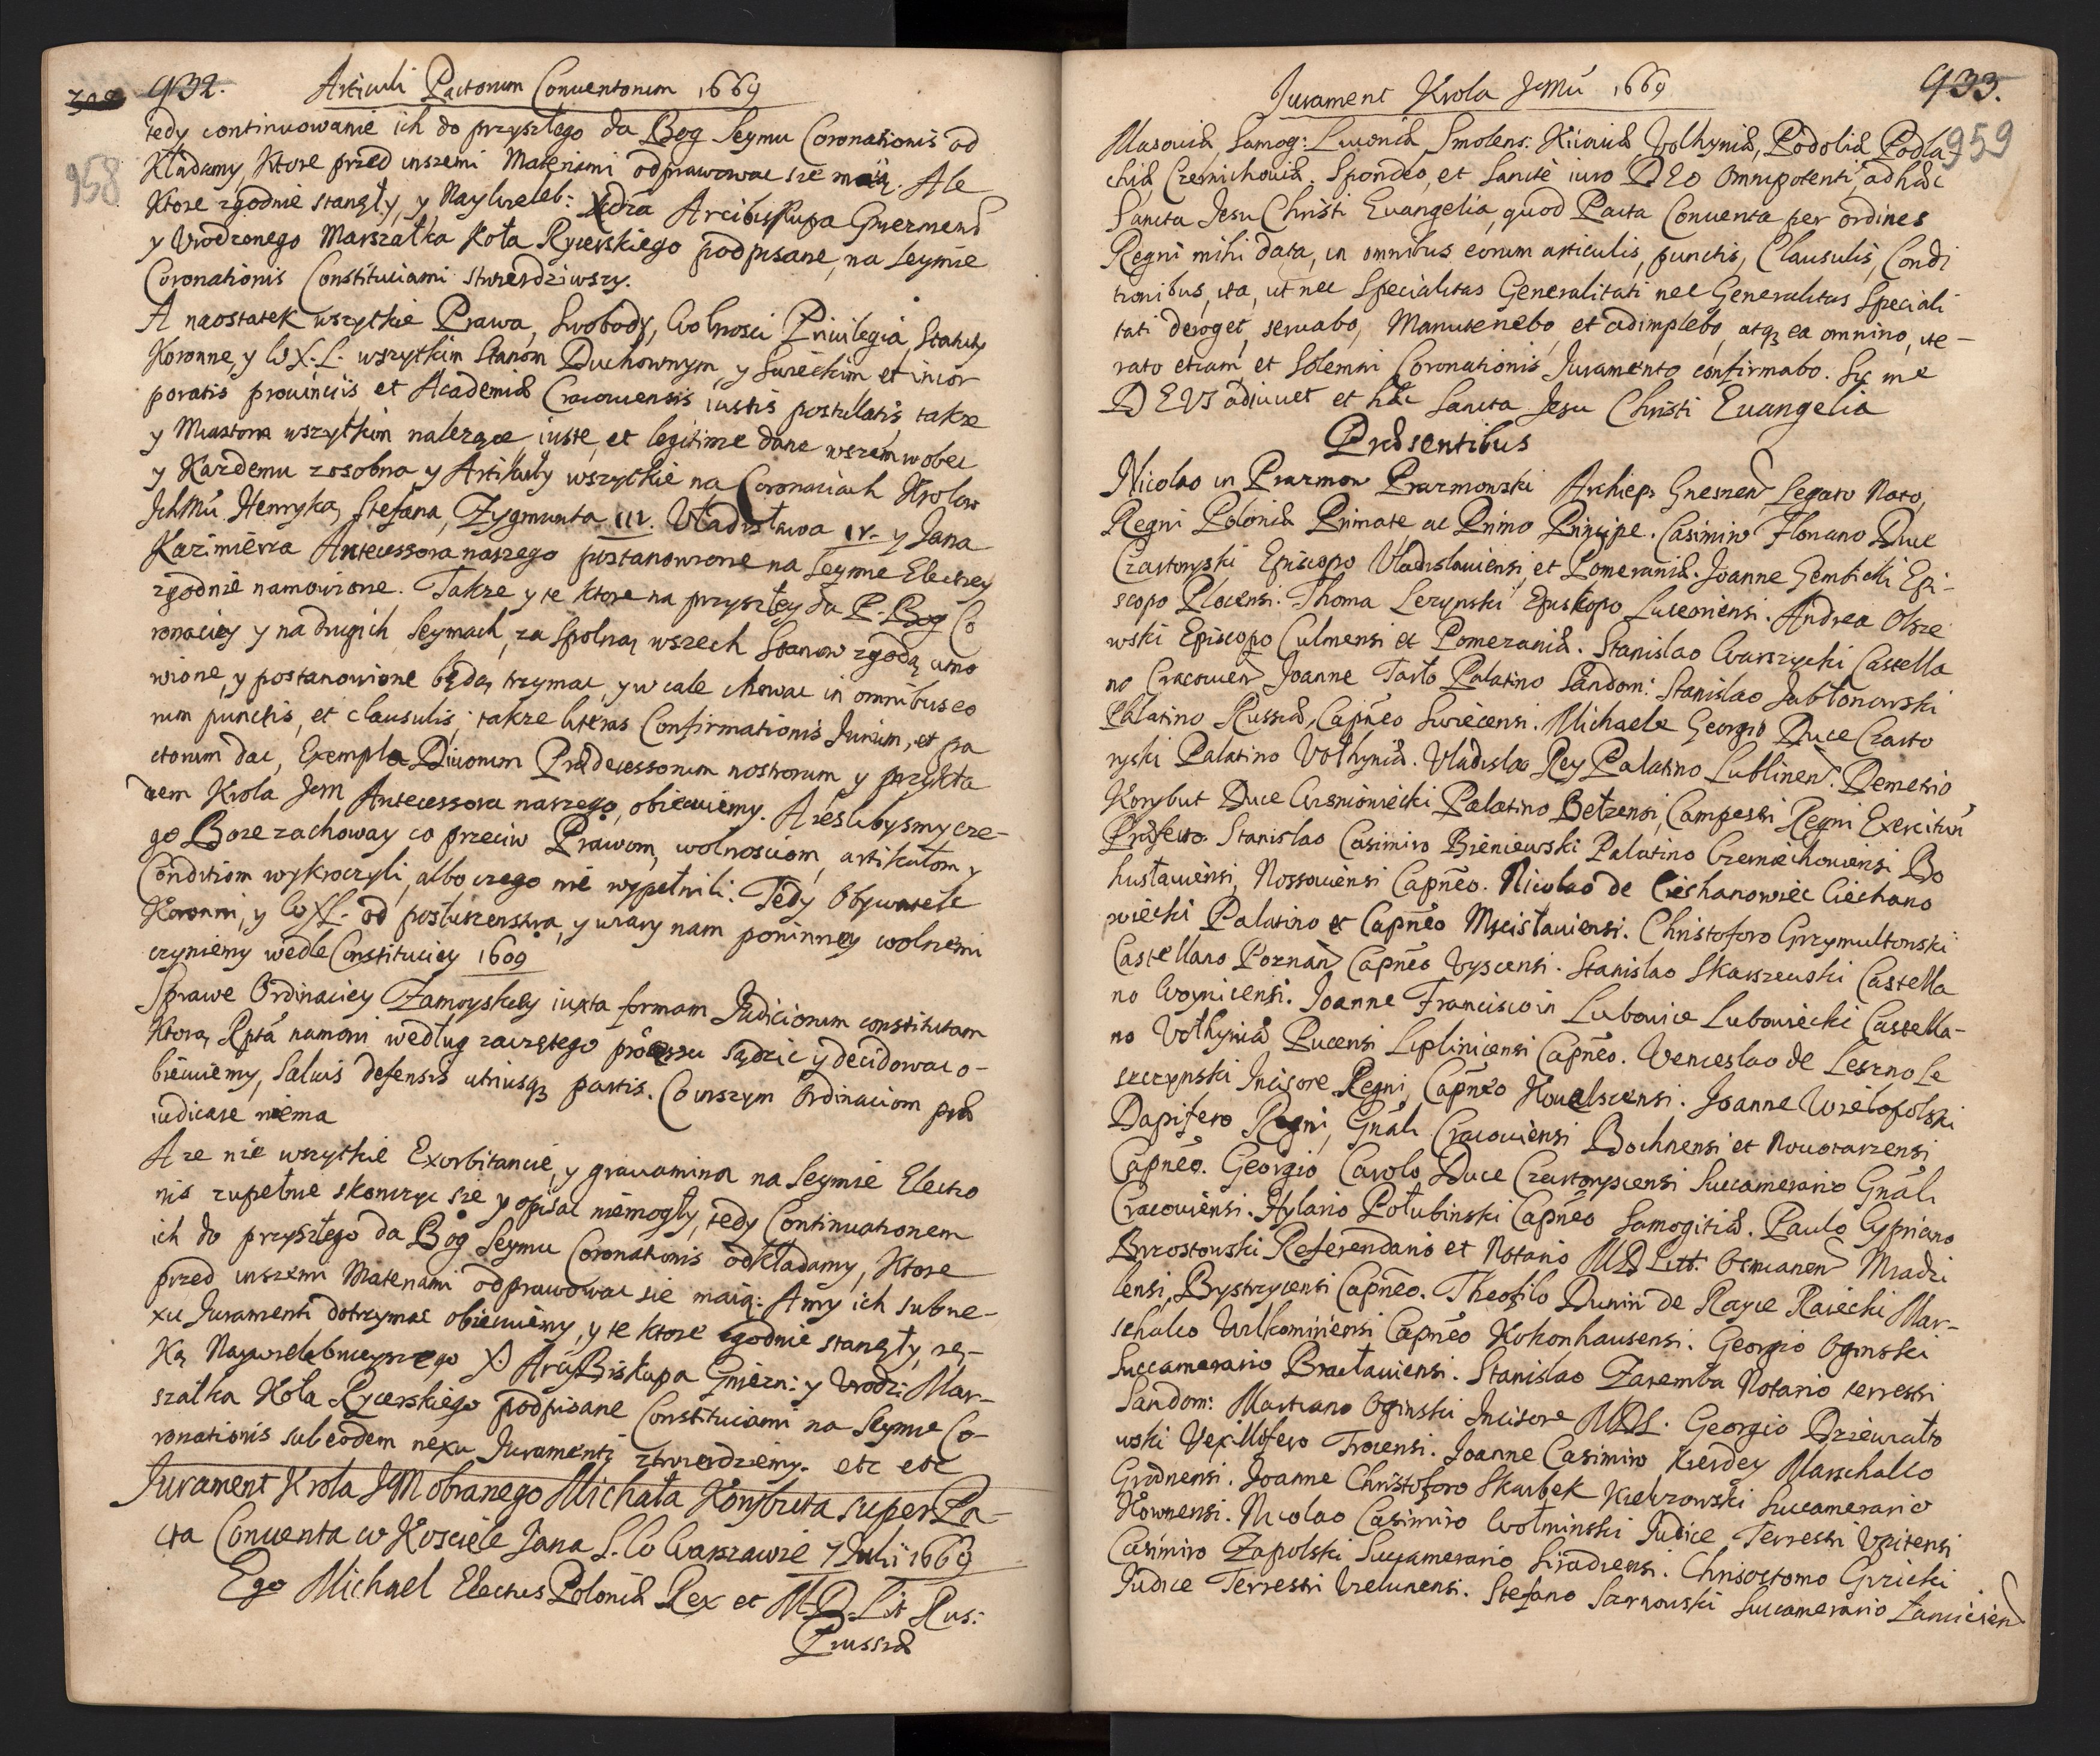 932. Articuli Pactorum Conventorum 1669
958
tedy continuowanie ich do przyszłego da Bog Seymu Coronationis od
kładamy, ktore przed inszemi Materiami odprawowac się maią. Ale
ktore zgodnie stanęły, y Naywieleb: Xdza Arcibiskupa Gnieznens
y Urodzonego Marszałka Koła Rycerskiego podpisane, na Seymie
Coronationis Constituciami stwierdziwszy.
A naostatek wszytkie Prawa, Swobody, Wolnosci Privilegia, Statuty
Koronne, y W.X.L. wszytkim Stanom Duchownym y Swieckim et incor
poratis provinciis et Academiæ Cracoviensis iustis postulatis, takze
y Miastom wszytkim nalezące iuste, et legitime dane wszem wobec
y Kazdemu zosobna, y Artikuły wszytkie na Coronaciach Krolow
Ichmći Henryka, Stefana, Zygmunta III. Vładisława IV. y Jana
Kazimierza Antecessora naszego postanowione na Seymie Electiey
zgodnie namowione. Takze y te ktore na przyszłey da P. Bog Co
ronaciey y na drugich Seymach, za spolną wszech Stanow zgodą umo
wione, y postanowione będą, trzymac, y wcale chowac in omnibus eo
rum punctis, et clausulis; takze literas Confirmationis Jurium, et pa
ctorum dac, Exemplo Divorum Prædecessorum nostrorum y przykła
dem Krola Jem Antecessora naszego, obiecuiemy. A iesliby smy cze-
go Boze zachoway co przeciw Prawom, wolnosciom, artikułom y
Conditiom wykroczyli, albo czego nie wypełnili: Tedy Obywatele
Koronni, y W.X.L. od posłuszenstwa, y wiary nam powinney wolnemi
czyniemy wedle Constituciey 1609
Sprawe Ordinaciey Zamoyskiey iuxta formam Judiciorum constitutam
ktorą Rptá namowi według zaczętego processu sądzic y decidowac o-
biecuiemy, Salvis defensis utriusq3 partis. Co inszym Ordinaciom præ
iudicare niema
A ze nie wszytkie Exorbitancie, y gravamina na Seymie Electio
nis zupełnie skonczyc się y opisac niemogły, tedy Continuationem
ich do przyszłego da Bog Seymu Coronationis odkładamy, Ktore
przed inszemi Materiami odprawowac sie maią: A my ich sub ne-
xu Juramenti dotrzymac obiecuiemy, y te ktore zgodnie stanęły, rę-
ką Naywielebnieyszego X. ArcyBiskupa Gniezn: y Urodz: Mar-
szałka Koła Rycerskiego podpisane Constituciami na Seymie Co-
ronationis sub eodem nexu Juramenti ztwierdziemy. etc etc
Jurament Krola JM obranego Michała Korybuta super Pa-
cta Conventa w Kosciele Jana S. W Warszawie 7 Julii 1669
Ego Michael Electus Poloniæ Rex et M.D. Lit Rus:
Prussiæ
Jurament Krola JeMći 1669 933.
959
Masoviæ, Samog: Livoniæ, Smolens: Kijoviæ, Volhyniæ, Podoliæ Podla
chiæ Czernichoviæ. Spondeo, et Sancte iuro DEO Omnipotenti, ad hæc
Sancta Jesu Christi Evangelia, quod Pacta Conventa per ordines
Regni mihi data, in omnibus eorum articulis, punctis, Clausulis, Condi
tionibus, ita, ut nec Specialitas Generalitati nec Generalitas Speciali
tati deroget, servabo, Manutenebo, et adimplebo, atq3 ea omnino, ite-
rato etiam et Solemni Coronationis Juramento confirmabo. Sic me
DEVS adiuvet et hæc Sancta Jesu Christi Evangelia
Præsentibus
Nicolao in Prazmow Prazmowski Archiep: Gnesnens Legato Nato,
Regni Poloniæ Primate, ac Primo Principe. Casimiro Floriano Duce
Czartoryski Episcopo Vladislaviensi et Pomeraniæ. Joanne Gembicki Epi-
scopo Plocensi. Thoma Lezynski Episkopo Luceoriensi. Andrea Olsze
wski Episcopo Culmensi et Pomezaniæ. Stanislao Warszycki Castella
no Cracovien Joanne Tarło Palatino Sandom: Stanislao Jabłonowski
Palatino Russiæ, Capneo Swiecensi. Michaele Georgio Duce Czarto
ryski Palatino Vołhyniæ. Vladislao Rey Palatino Lublinen. Demetrio
Korybut Duce Wisniowiecki Palatino Bełzensi, Campestri Regni Exercituū
Præfecto. Stanislao Casimiro Bieniewski Palatino Czerniechoviensi Bo
husłaviensi, Nossoviensi Capneo. Nicolao de Ciechanowiec Ciechano
wiecki Palatino et Capneo Mscisłaviensi. Christoforo Grzymultowski
Castellano Poznan Capneo Uyscensi. Stanislao Skarszewski Castella
no Woynicensi. Joanne Francisco in Lubowice Lubowiecki Castella-
no Vołhyniæ Pucensi Lipliniensi Capneo. Venceslao de Leszno Le
szczynski Incisore Regni, Capneo Kovalscensi. Joanne Wielopolski
Dapifero Regni, Gnáli Cracoviensi Bochnensi et Novotarzensi
Capneo. Georgio Carolo Duce Czartoryscensi Succamerario Gnáli
Cracoviensi. Hylario Połubinski Capneo Samogitiæ. Paulo Cypriano
Brzostowski Referendario et Notario M.D. Litt. Osmianen Miadzi
lensi, Bystrzycensi Capneo. Theofilo Dunin de Rayce Raiecki Mar-
schalco Wilkomiriensi Capneo Kokonhausensi. Georgio Oginski
Succamerario Bracłaviensi. Stanislao Zaremba Notario terrestri
Sandom: Martiano Oginski Incisore MDL. Georgio Dziewiałto
wski Vexillifero Trocensi. Joanne Casimiro Kierdey Marschalco
Grodnensi. Joanne Christoforo Skarbek Kiełczowski Succamerario
Kownensi. Nicolao Casimiro Wołminski Judice Terrestri Upitensi
Casimiro Zapolski Succamerario Siradiensi. Chrisostomo Gizicki
Judice Terrestri Vielunensi. Stefano Sarnowski Succamerario Lanciciens